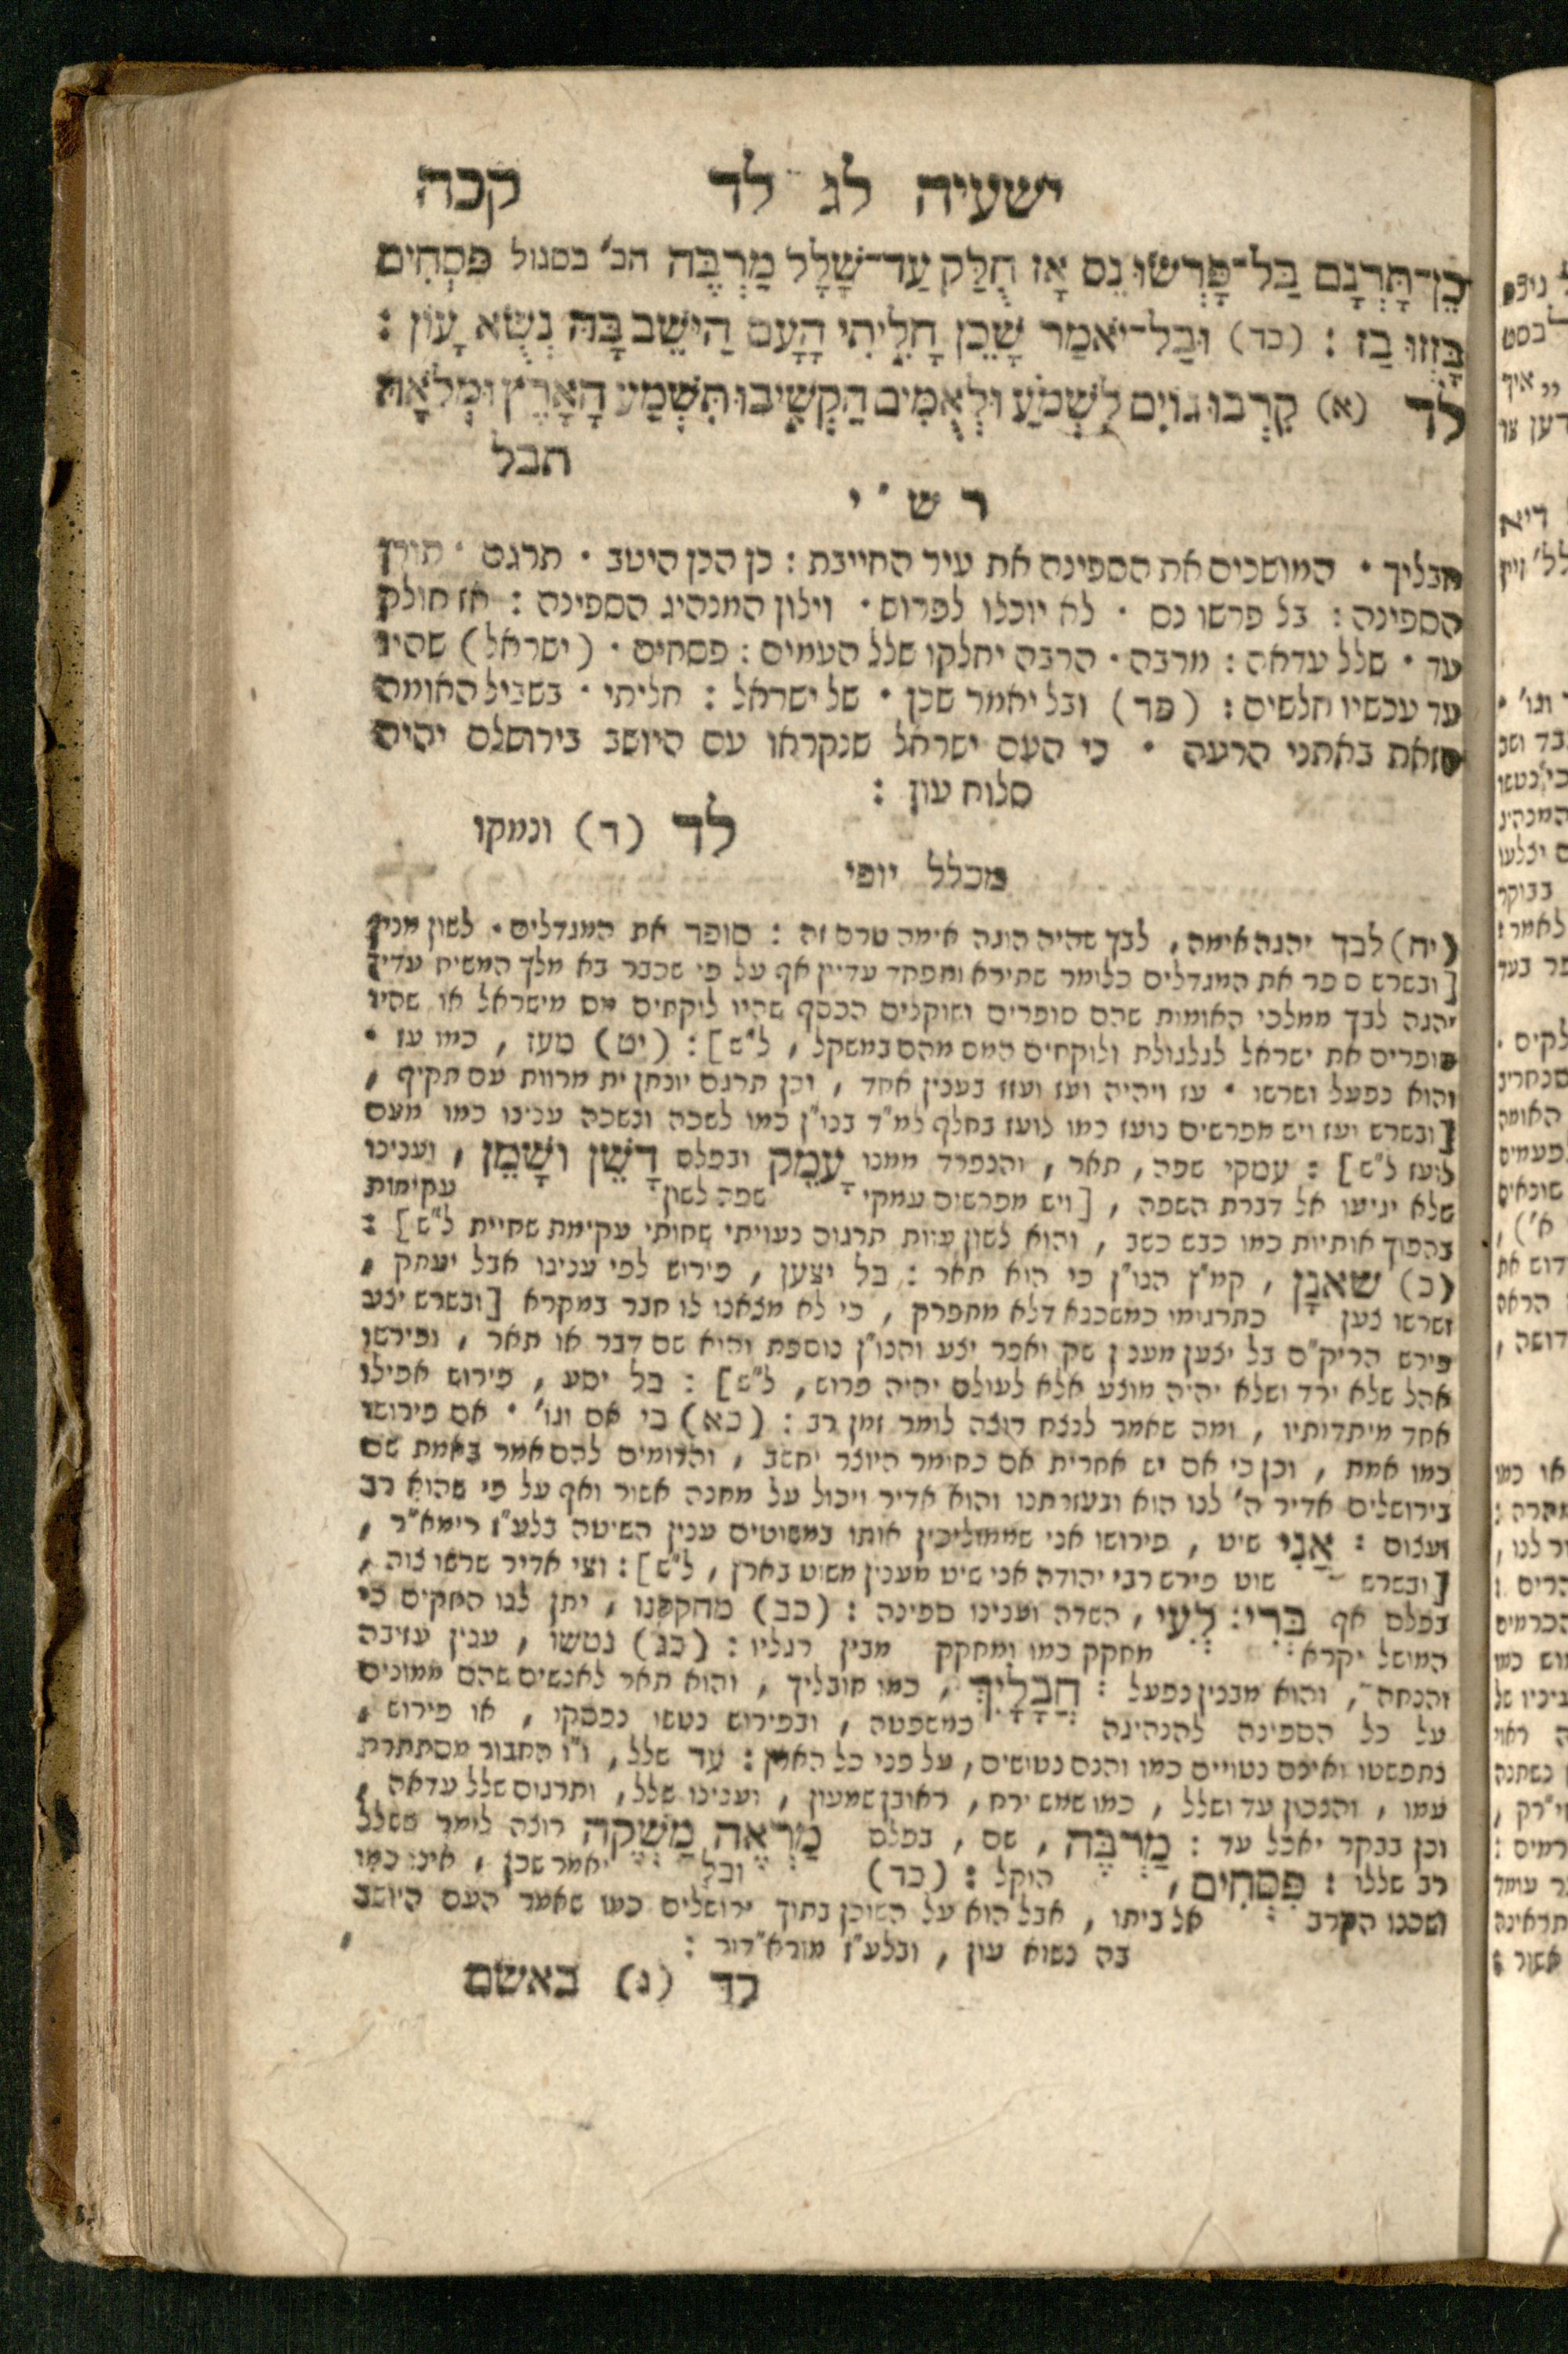 ישעיה לג לד קכה
כֵן־תָּרְנָם בַּל־פָּרְשׂוּ נֵס אָז חֻלַּק עַד־שָׁלָל מַרְבֶּה הב׳ בסגול פִּסְחִים
בָּזְזוּ בַז : (כד) וּבַל־יֹאמַר שָׁכֵן חָלִיתִי הָעָם הַיֹּשֵׁב בָּהּ נְשֻׂא עָוֹן :
לד (א) קִרְבוּ גוֹיִם לִשְׁמֹעַ וּלְאֻמִּים הַקְשִׁיבוּ תִּשְׁמַע הָאָרֶץ וּמְלֹאָהּ
תבל
ר ש ׳ י
חבליך · המושכים את הספינה את עיר החייבת : כן הכן היטב · תרגם · תורן
הספינה : בל פרשו נס · לא יוכלו לפרוש · וילון המנהיג הספינה : אז חולק
עד · שלל עדאה : מרבה · הרבה יחלקו שלל העמים : פסחים · (ישראל) שהיו
עד עכשיו חלשים : (כד) ובל יאמר שכן · של ישראל : חליתי · בשביל האומה
הזאת באתני הרעה · כי העם ישראל שנקראו עם היושב בירושלם יהיה
סלוח עון :
לד (ד) ונמקו
מכלל יופי
(יח) לבך יהגה אימה, לבך שהיה הוגה אימה טרם זה : סופר את המגדלים · לשון מנין
[ובשרש ספר את המגדלים כלומר שתירא ותפחד עדיין אף על פי שכבר בא מלך המשיח עדיין
יהגה לבך ממלכי האומות שהם סופרים ושוקלים הכסף שהיו לוקחים מס מישראל או שהיו
סופרים את ישראל לגלגולת ולוקחים המס מהם במשקל, ל״ש] : (יט) נועז, כמו עז ·
והוא נפעל ושרשו · עז ויהיה ועז ועזז בענין אחד, וכן תרגם יונתן ית מרוות עם תקיף,
[ובשרש ועז ויש מפרשים נועז כמו לועז בחלף למ״ד בנו״ן כמו לשכה ונשכה ענינו כמו מעם
לועז ל״ש] : עמקי שפה, תאר, והנפרד ממנו עָמֵק ובפלס דָשֵׁן וְשָׁמֵן, וענינו
שלא יגיעו אל דברת השפה, [ויש מפרשים עמקי שפה לשון עקימות
בהפוך אותיות כמו כבש כשב, והוא לשון עוות תרגום נעויתי שחותי עקימת שחיית ל״ש] :
(כ) שאנָן, קמ״ץ הנו״ן כי הוא תאר : בל יצען, פירוש לפי ענינו אבל יעתק,
ושרשו צען כתרגומו כמשכנא דלא מתפרק, כי לא מצאנו לו חבר במקרא [ובשרש יצע
פירש הריק״ם בל יצען מענין שק ואפר יצע והנו״ן נוספת והוא שם דבר או תאר, ופירשו
אהל שלא ירד ושלא יהיה מוצע אלא לעולם יהיה פרוש, ל״ש] : בל יסע, פירוש אפילו
אחד מיתדותיו, ומה שאמר לנצח רוצה לומר זמן רב : (כא) כי אם וגו׳ · אם פירושו
כמו אמת, וכן כי אם יש אחרית אם כחומר היוצר יחשב, והדומים להם אמר באמת שם
בירושלים אדיר ה׳ לנו הוא ובעזרתנו והוא אדיר ויכול על מחנה אשור ואף על פי שהוא רב
ועצום : אֳנִי שיט, פירושו אני שמוליכין אותו במשוטים ענין השיטה בלע״ז רימא״ר,
[ובשרש שוט פירש רבי יהודה אני שיט מענין משוט בארץ, ל״ש] : וצי אדיר שרשו צוה,
בפלס אף בְּרִי: לְעִי, השדה וענינו ספינה : (כב) מחקקנו, יתן לנו החקים כי
המושל יקרא מחקק כמו ומחקק מבין רגליו : (כג) נטשו, ענין עזיבה
והנחה, והוא מבנין נפעל : חֲבָלָיִךְ, כמו חובליך, והוא תאר לאנשים שהם ממונים
על כל הספינה להנהיגה כמשפטה, ובפירוש נטשו נפסקו, או פירוש,
נתפשטו ואינם נטויים כמו והנם נטושים, על פני כל הארץ : עד שלל, ו״ו החבור מסתתרת
עמו, והנכון עד ושלל, כמו שמש ירח, ראובן שמעון, וענינו שלל, ותרגום שלל עדאה,
וכן בבקר יאכל עד : מַרְבֶּה, שם, בפלס מַרְאֶה מַשְׁקֶה רוצה לומר ששלל
רב שללו : פִּסְחִים, הוקל : (כד) ובל יאמר שכן, אינו כמו
ושכנו הקרב אל ביתו, אבל הוא על השוכן בתוך ירושלים כמו שאמר העם היושב
בה נשוא עון, ובלע״ז מורא״דור :
לד (ג) באשם